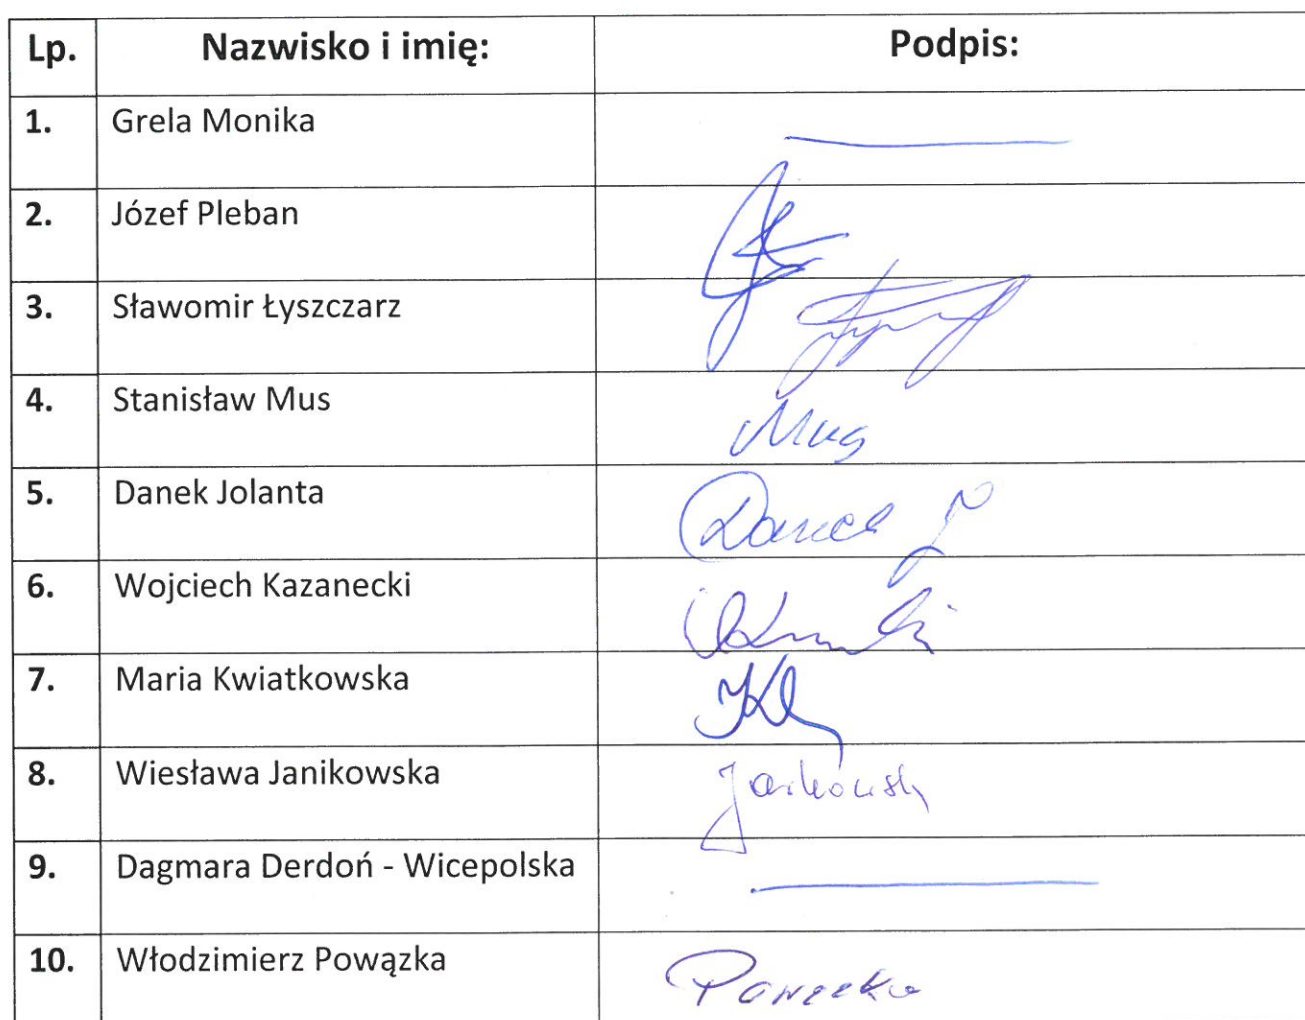 Lp. Nazwisko i imię: Podpis:
1. Grela Monika
2. Józef Pleban
3. Sławomir Łyszczarz
4. Stanisław Mus Mus
5. Danek Jolanta Danek J
6. Wojciech Kazanecki
7. Maria Kwiatkowska
8. Wiesława Janikowska
9. Dagmara Derdoń - Wicepolska
10. Włodzimierz Powązka